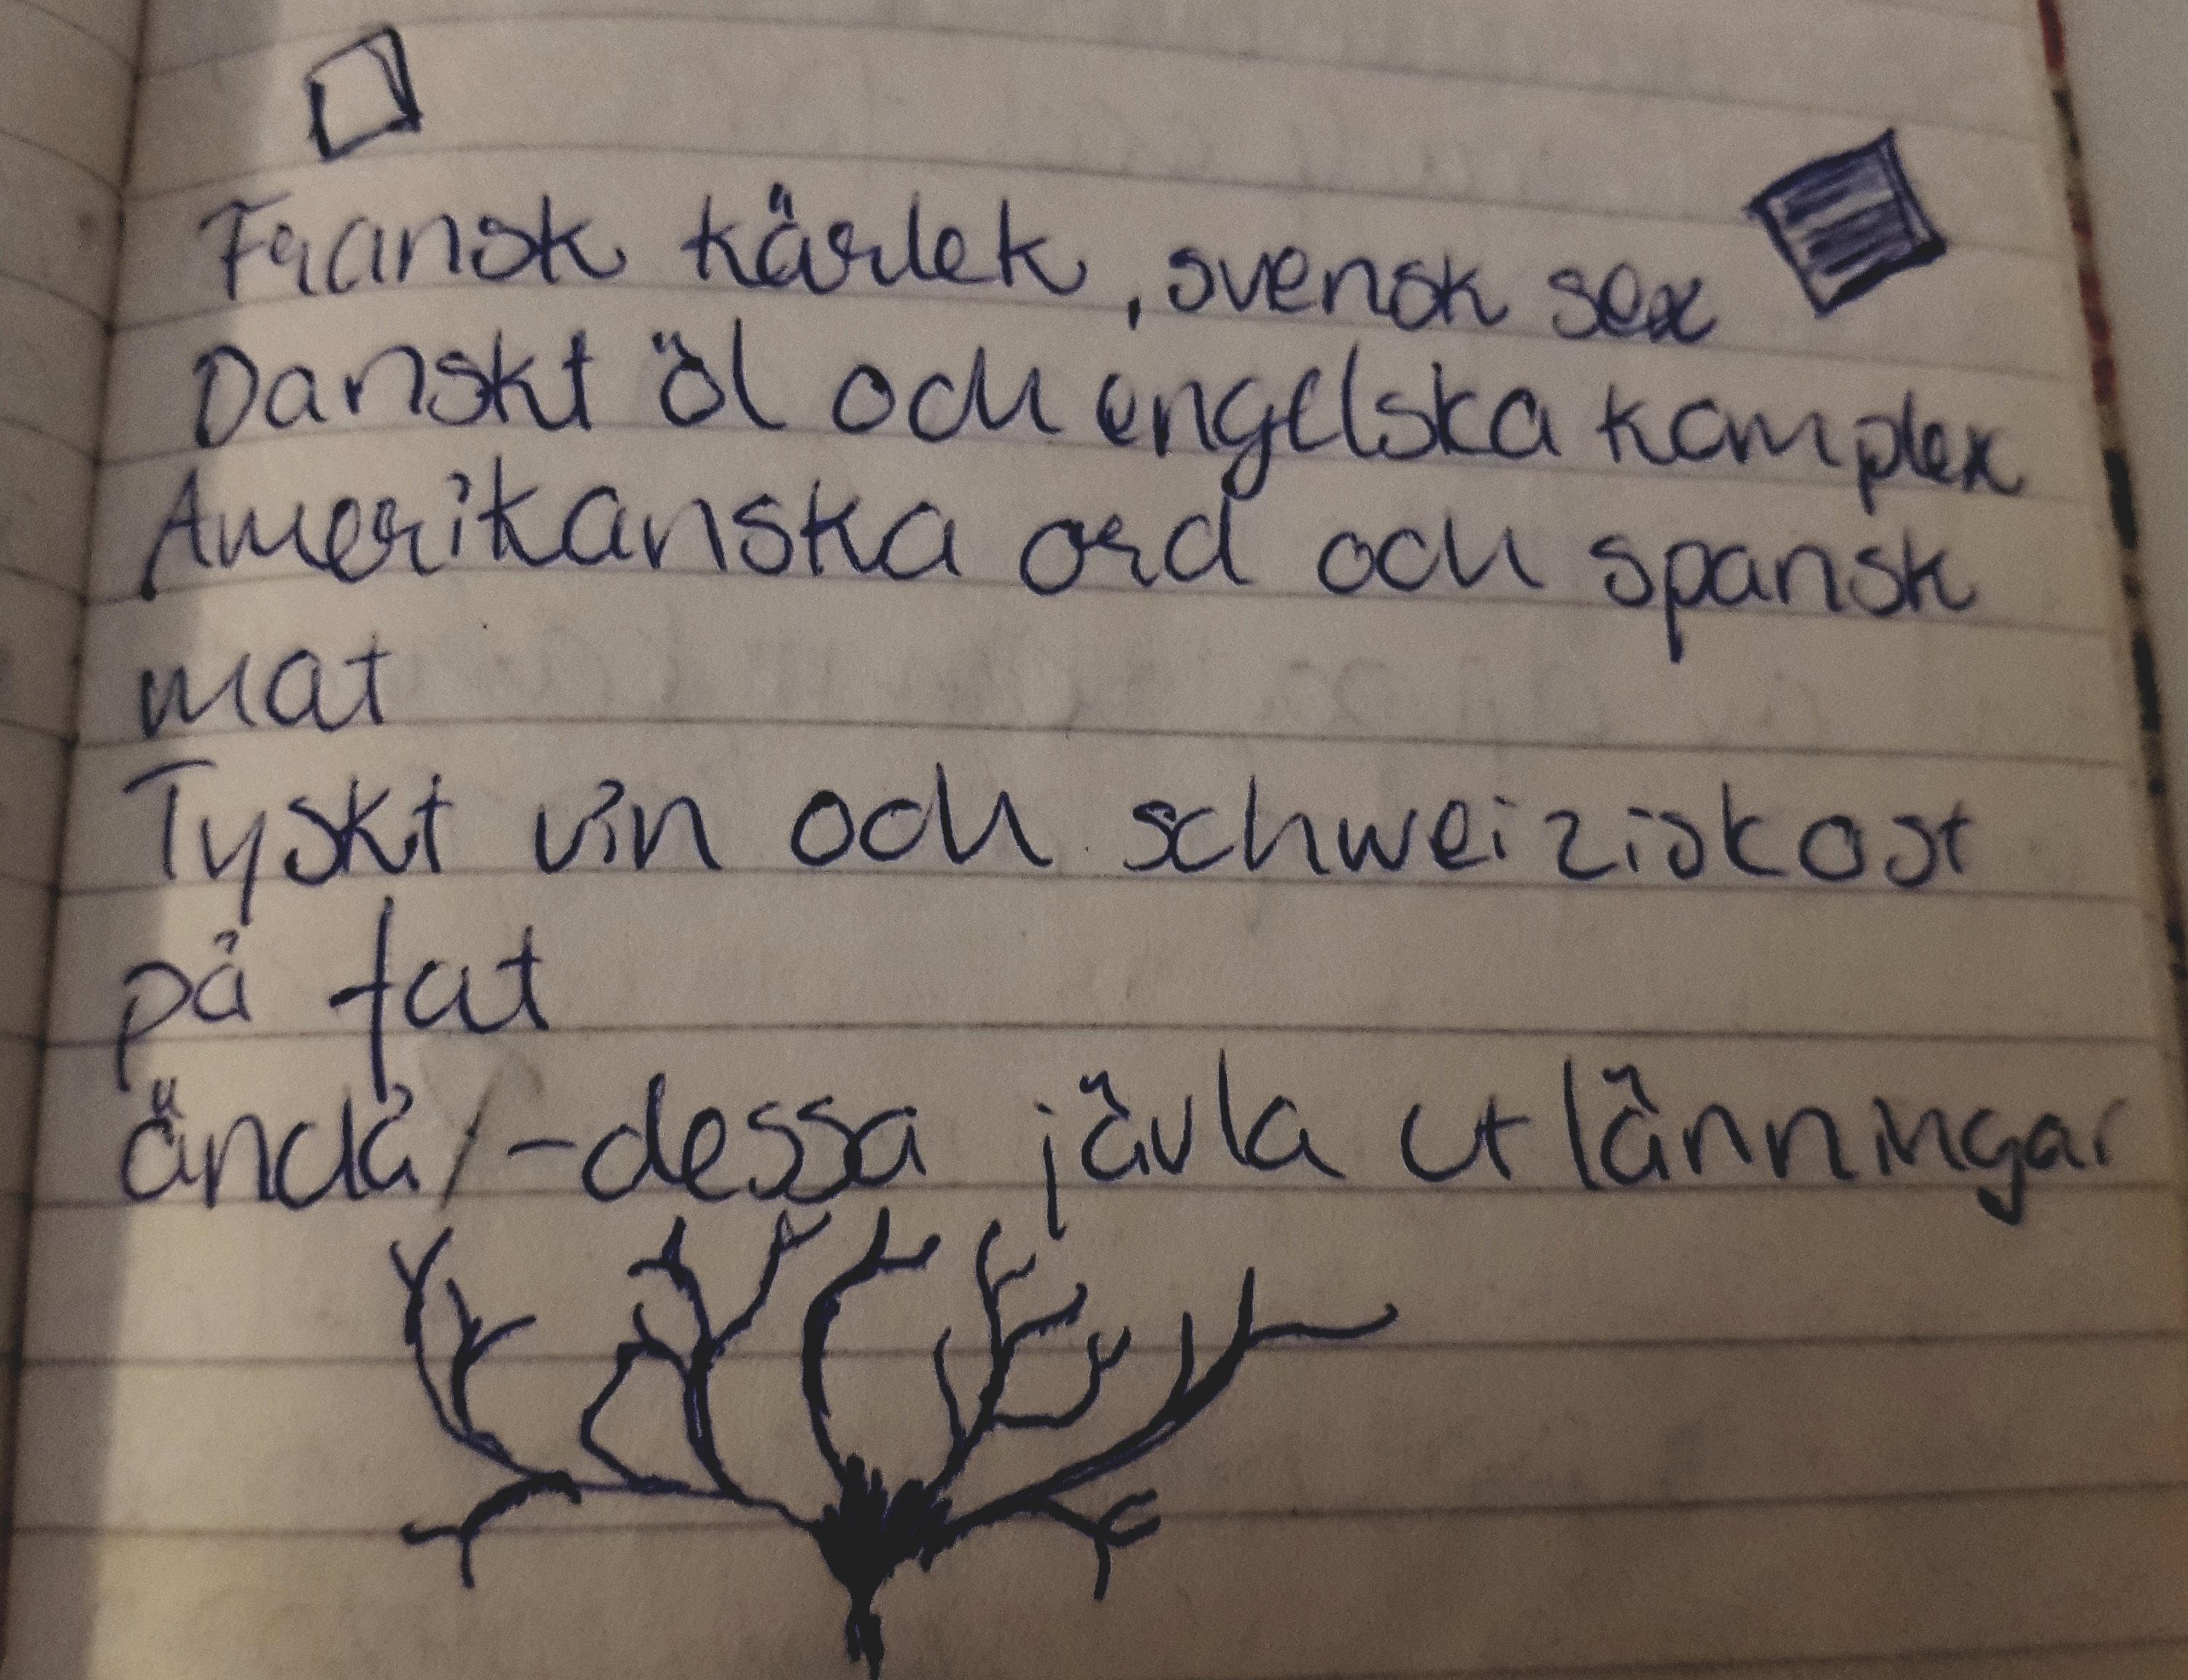 Fransk kärlek, svensk sex
Danskt öl och engelska komplex
Amerikanska ord och spansk
mat
Tyskt vin och schweiziskost
på fat
ändå/-dessa jävla utlänningar